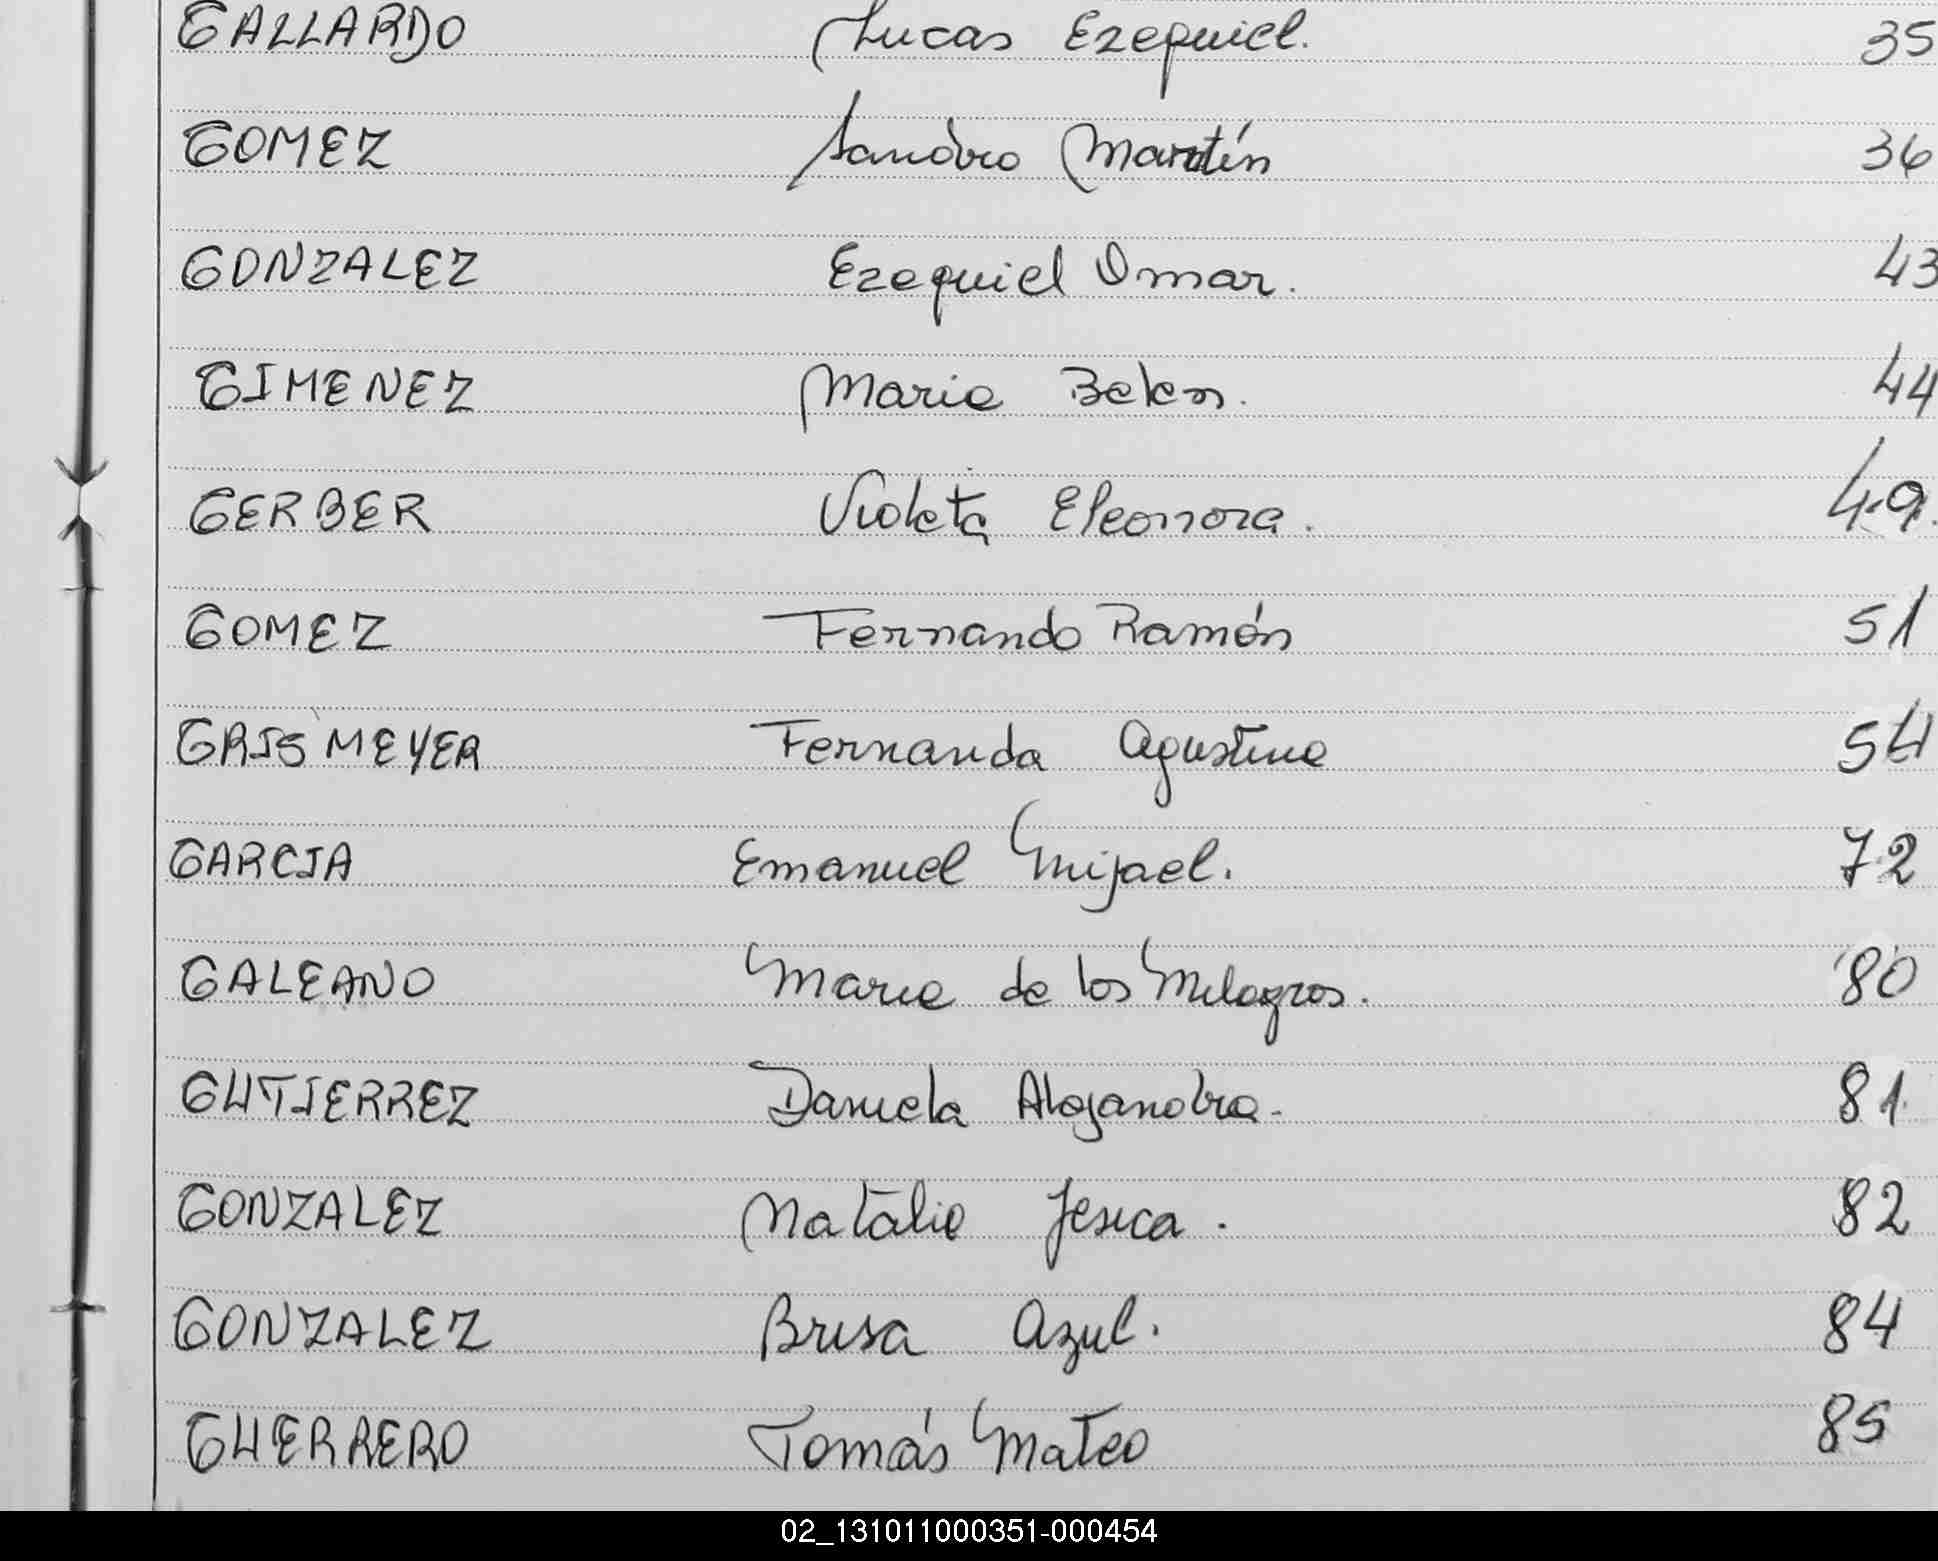 GALLARDO Lucas Ezequiel. 35
GOMEZ Sandro Martín 36
GONZALEZ Ezequiel Omar. 43
GIMENEZ Maria Belen. 44
GERBER Violeta Eleonora. 49.
GOMEZ Fernando Ramón 51
GRISMEYER Fernanda Agustina 54
GARCIA Emanuel Mijael. 72
GALEANO Maria de los Milagros. 80
GUTIERREZ Daniela Alejandra. 81
GONZALEZ Natalia Jesica. 82
GONZALEZ Brisa Azul. 84
GUERRERO Tomás Mateo 85
02_131011000351-000454